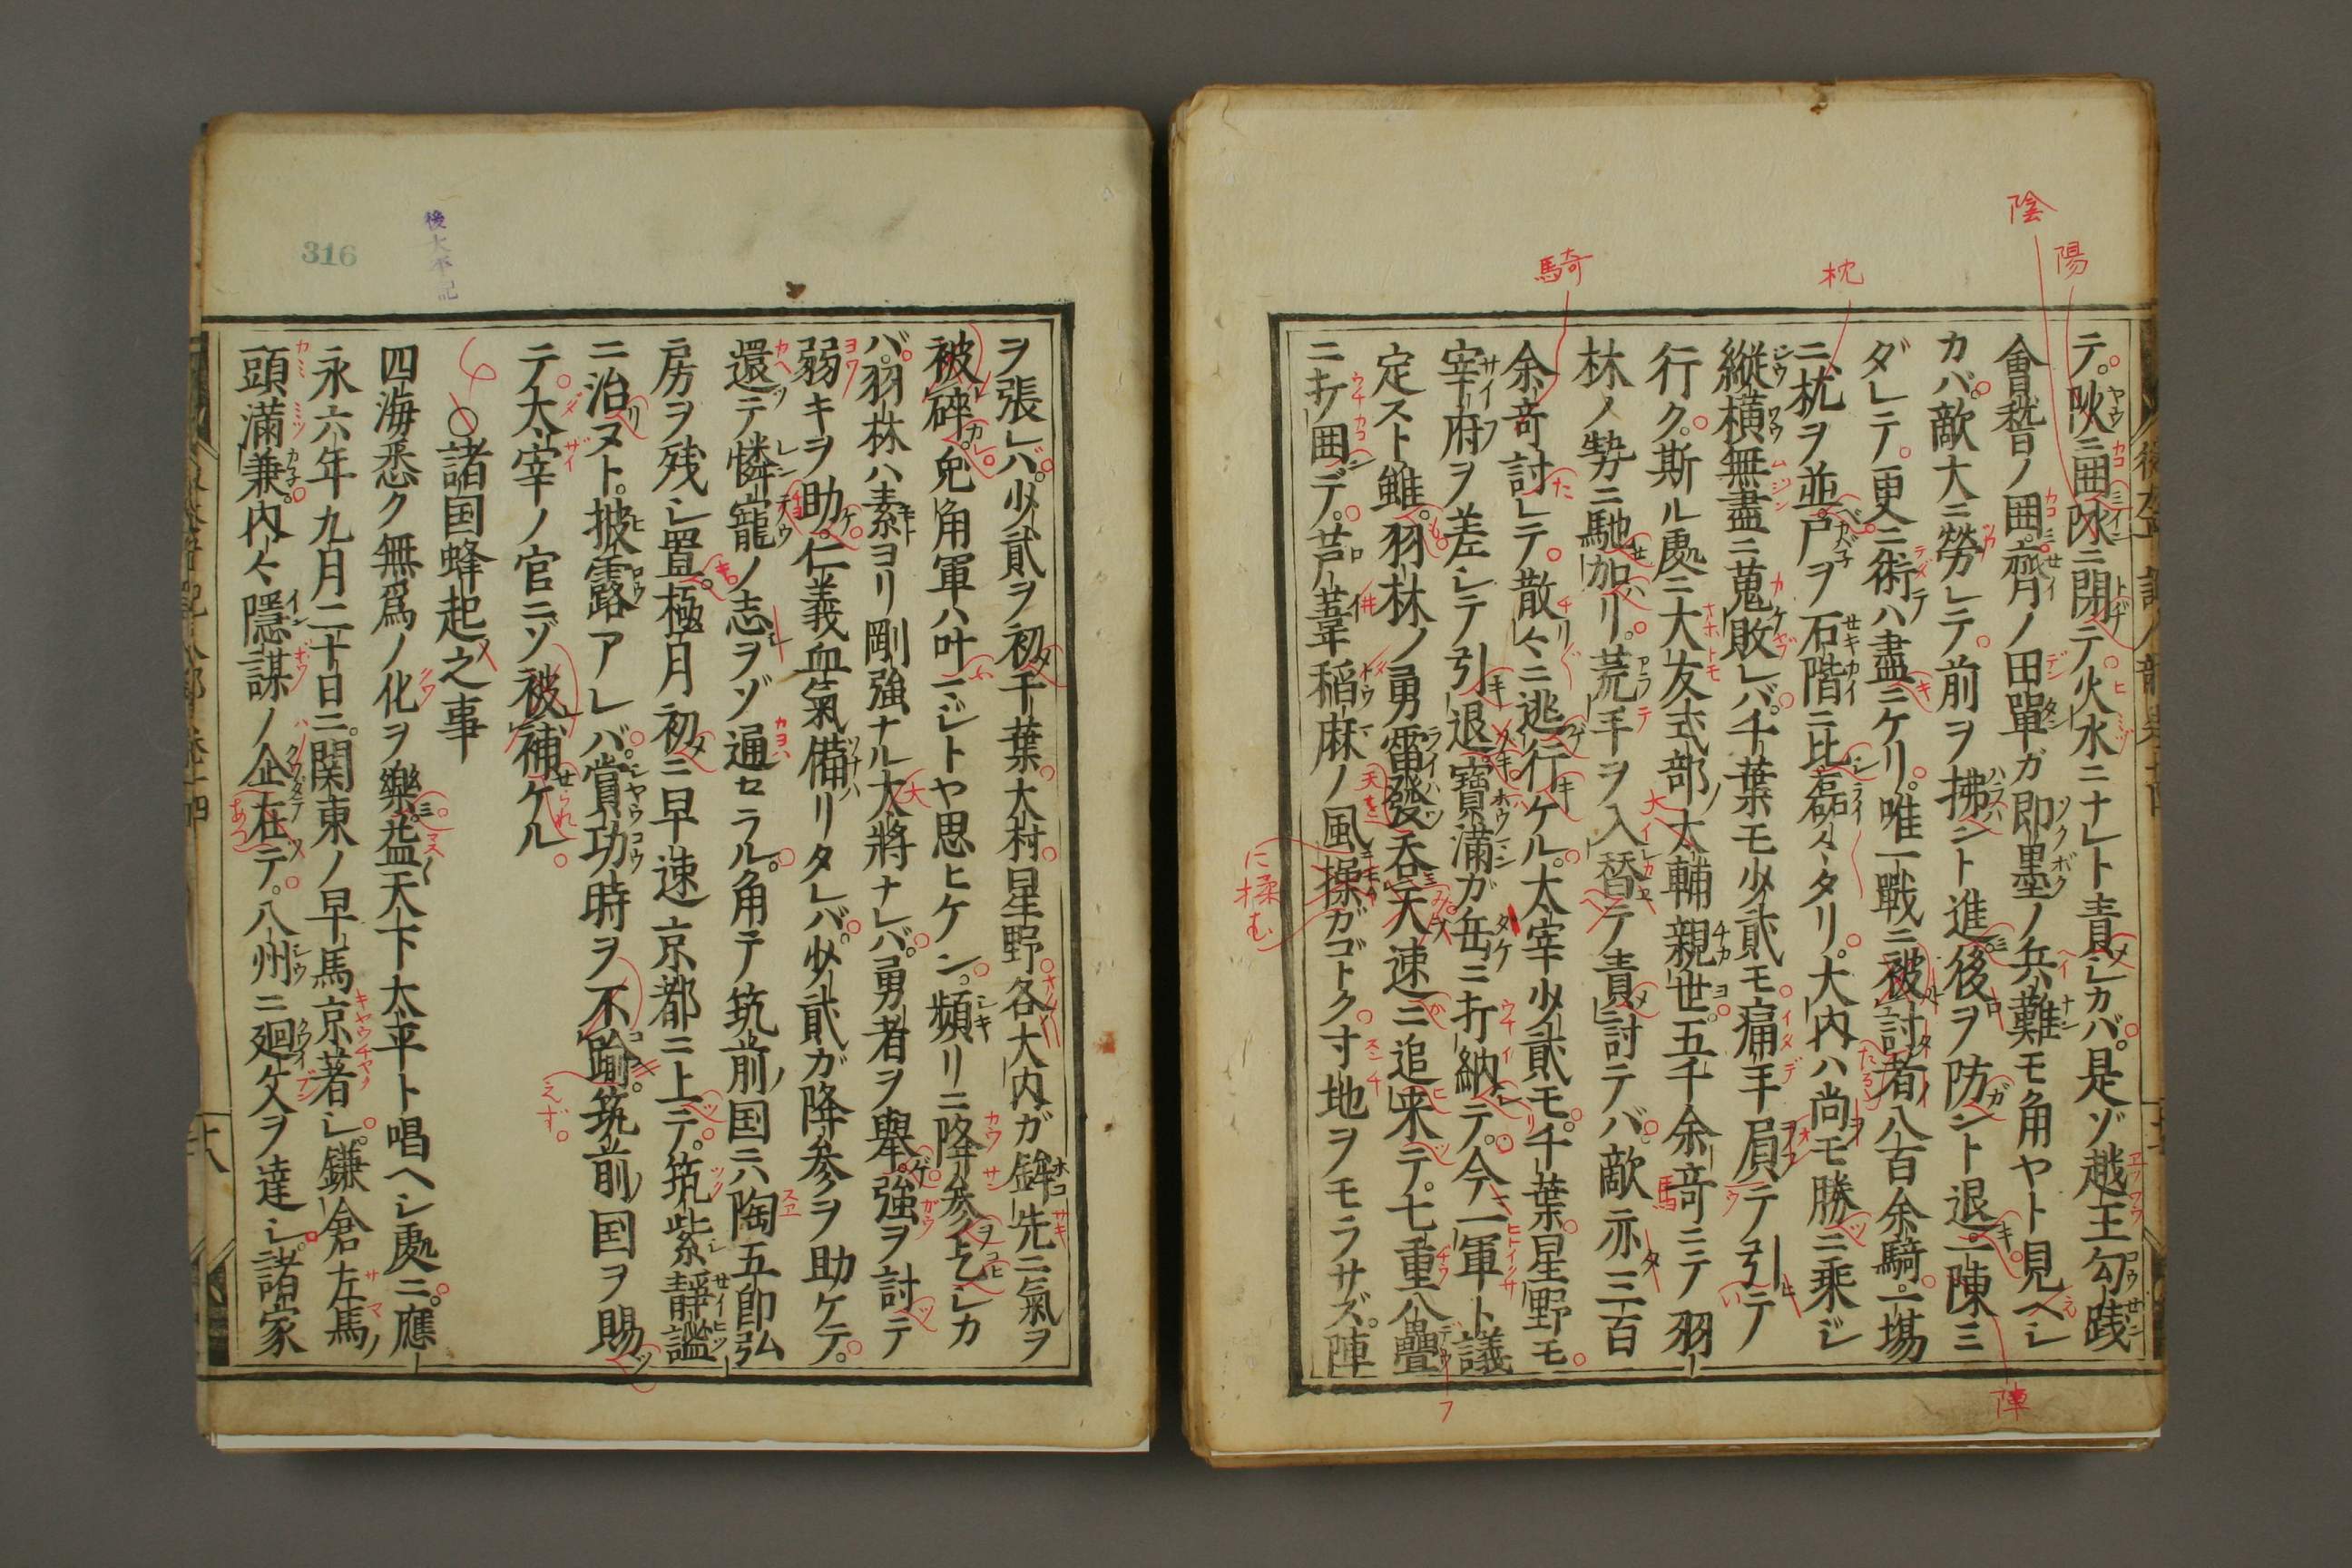 陰
陽
枕
騎
テ。陜ニ囲。陝ニ閉テ火水ニナレト責シカバ。是ゾ越王勾践
會稽ノ囲。齊ノ田單ガ即墨ノ兵難モ角ヤト見ヘシ
カバ。敵大ニ勞レテ。前ヲ拂ント進。後ヲ防ント退。一陳ニ
ダレテ。更ニ術ハ盡ニケリ。唯一戰ニ被討者八百余騎。一塲
ニ杭ヲ並。戸ヲ石階ニ比。磊々タリ。大内ハ尚モ勝ニ乘ジ
縱横無盡ニ蒐敗レバ。千葉モ少貳モ痛手肩テ引テ
行ク。斯ル處ニ大友式部ノ太輔親世。五千余竒ニテ羽
林ノ勢ニ馳加リ。荒手ヲ入替テ責討テバ。敵亦三百
余竒討レテ。散々ニ逃行ケル。太宰少貳モ。千葉星野モ
宰府ヲ差シテ引退。寶滿ガ岳ニ打納テ。今一軍ト議
定スト雖。羽林ノ勇雷發呑天速ニ追来テ。七重八疊
ニ打囲デ。芦葦稲麻ノ風操ガゴトク寸地ヲモラサズ。陣
に揉む
陣
後太平記
316
ヲ張レバ。少貳ヲ初千葉大村星野各大内ガ鉾先ニ氣ヲ
被碎。兎角軍ハ叶ジトヤ思ヒケン。頻リニ降参乞シカ
バ。羽林ハ素ヨリ剛強ナル大將ナレバ。勇者ヲ舉。強ヲ討テ
弱キヲ助。仁義血氣備リタレバ。少貳ガ降参ヲ助ケテ。
還テ憐寵ノ志ヲゾ通セラル。角テ筑前国ニハ陶五郎弘
房ヲ残シ置。極月初ニ早速京都ニ上テ。筑紫靜謐
ニ治ヌト。披露アレバ。賞功時ヲ不踰。筑前国ヲ賜
テ太宰ノ官ニゾ被補ケル
○諸国蜂起之事
四海悉ク無爲ノ化ヲ樂。益天下太平ト唱ヘシ處ニ。應
永六年九月二十日ニ。関東ノ早馬京著シ。鎌倉左馬ノ
頭滿兼。内々隱謀ノ企在テ。八州ニ廻文ヲ達シ。諸家